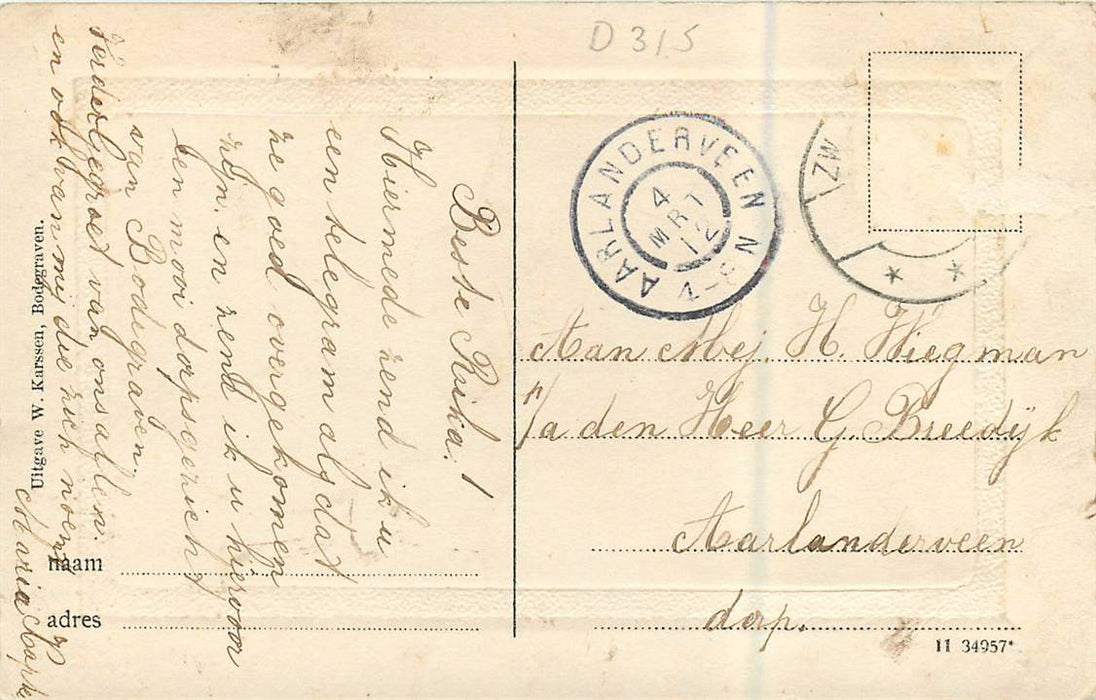 D 315
AARLANDERVEEN
4 MRT 12
4-8 N
ZW
Beste Rika!
Hiermede zend ik u
een telegram als dat
ze goed overgekomen
zijn. en zend ik u hiervoor
een mooi dorpsgezicht
van Bodegraven.
Verder gegroet van ons allen.
en ook van mij die zich noemt
Maria
Aan Mej. H. Wiegman
p/a den Heer G. Breedijk
Aarlanderveen
dorp.
naam
adres
Uitgave W. Karssen, Bodegraven.
11 34957*